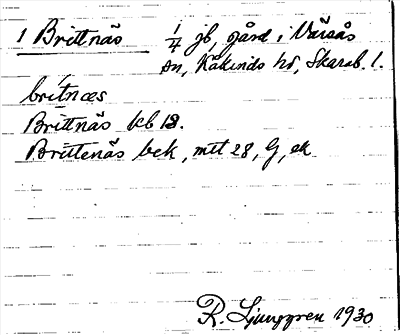 1 Brittnäs 1/4 jb, gård i Värsås
sn, Kåkinds hd, Skarab. l.
brítnæs
Brittnäs kb 18.
Brittenäs bek, mtl 28, G, ek
R. Ljunggren 1930